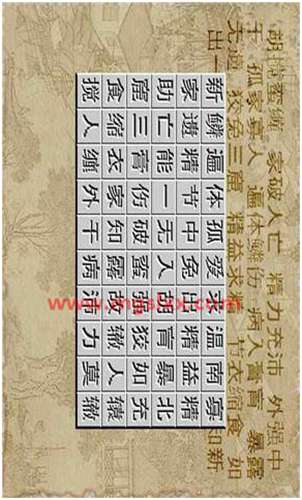 胡搅蛮缠 家破人亡 精力充沛 外强中
干 孤家寡人 遍体鳞伤 病入膏肓 暴露
无遗 狡兔三窟 精益求精 节衣缩食 如
出一 知新
新鳞遍体孤爱求温南寡
家遗精节中兔出精益精
助亡能一无入胡肓暴北
窟三膏伤破蛮强狡如充
食缩衣家知露改辙人辕
搅人缠外干病沛力莫辙